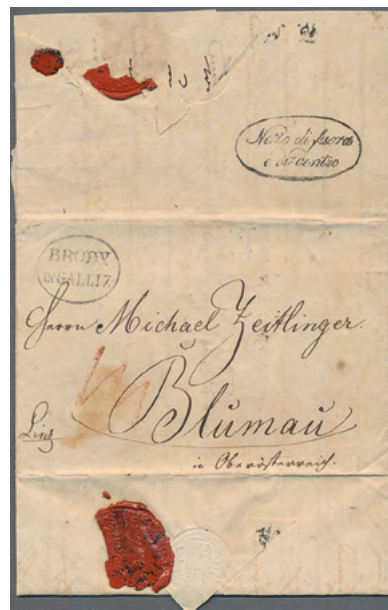 Netto di fuora
e di dentro
BRODY
IN GALLIZ.
Herrn Michael Zeitlinger.
Blumau
Linz
in Oberösterreich.